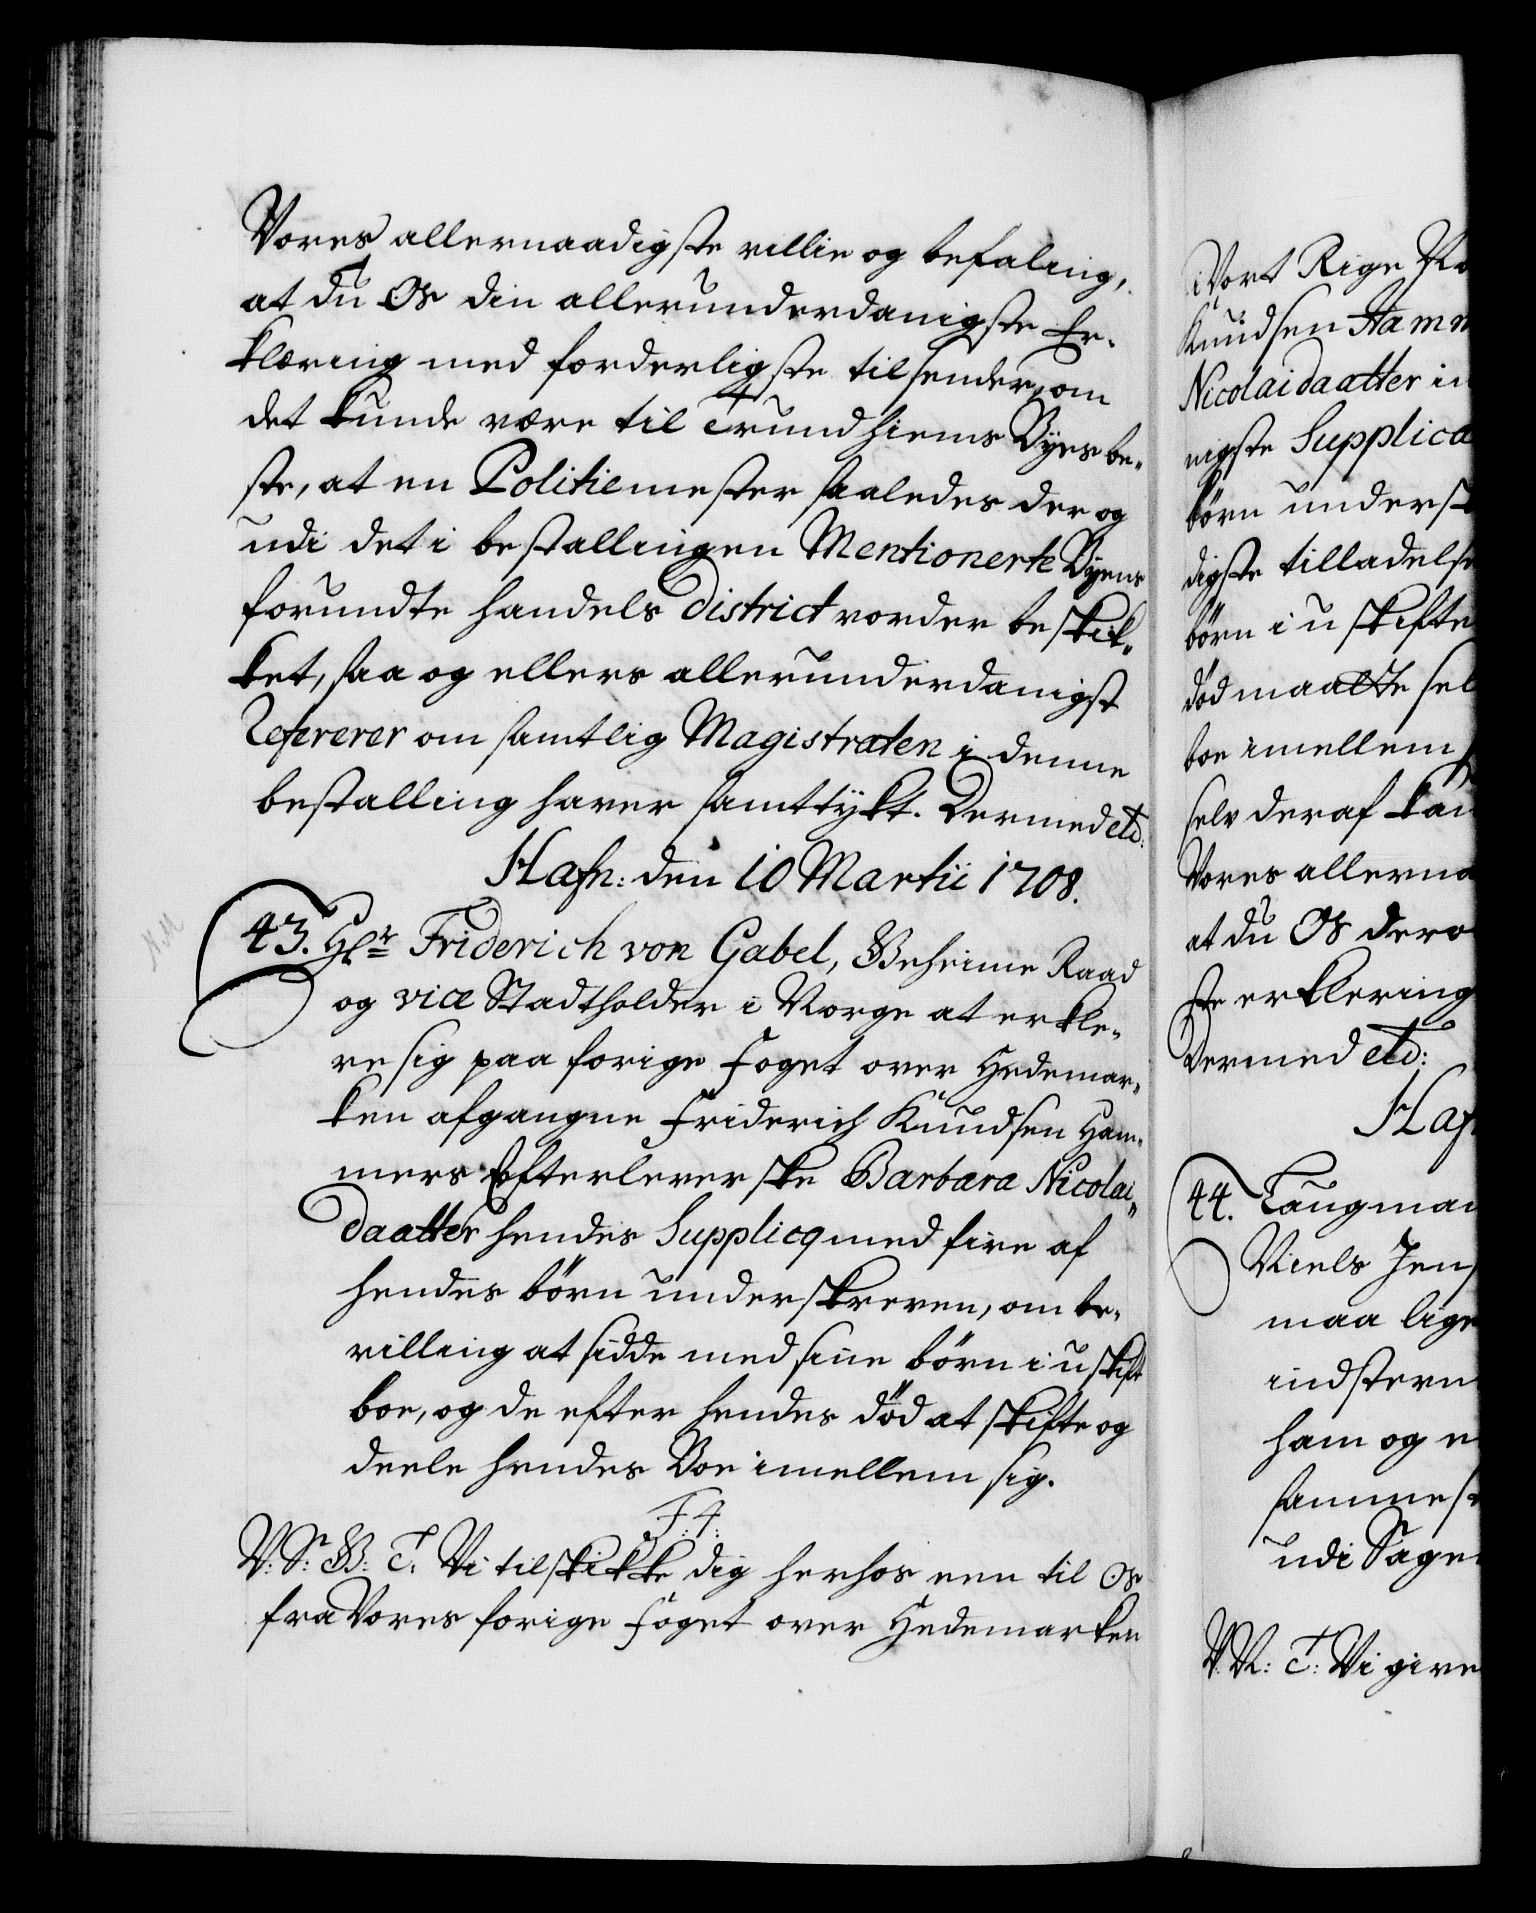 Vores allernaadigste villie og befaling,
at du Os din allerunderdanigste Er-
klæring med forderligste tilsender, om
det kunde være til Trundhiems Byes be-
ste, at en Politiemester saaledes der og
udi det i bestallingen Mentionerte Byens
forundte handels District vorder beskik-
ket, saa og ellers allerunderdanigst
Refererer om samtlig Magistraten i denne
bestalling haver samtykt. Dermed etc:
Hafn: den 10 Martii 1708.
43. Hr Friderich von Gabel, Geheime Raad
og vice Stadtholder i Norge at erkle-
re sig paa forige Foget over Hedemar-
ken afgangne Friderich Knudsen Ham-
mers Efterleverske Barbara Nicolai-
daatter hendes Supplicq med fire af
hendes börn underskreven, om be-
villing at sidde med sine börn i uskift
boe, og de efter hendes död at skifte og
deele hendes Boe imellem sig.
F: 4:
V: S: G: T: Vi tilskikke dig herhos een til Os
fra Vores forige Foget over Hedemarken
i Vort Rige No
Knudsen Hamm
Nicolaidaatter in
nigste Supplica
börn undersk
digste tilladelse
börn i uskifte
död maatte sel
boe imellem
selv deraf kan
Vores allerna
at du Os dero
ste erklering
Dermed etc:
Haf
44. Laugman
Niels Jens
maa lige
indstevn
ham og e
samme s
udi Sage
V. N: T: Vi give